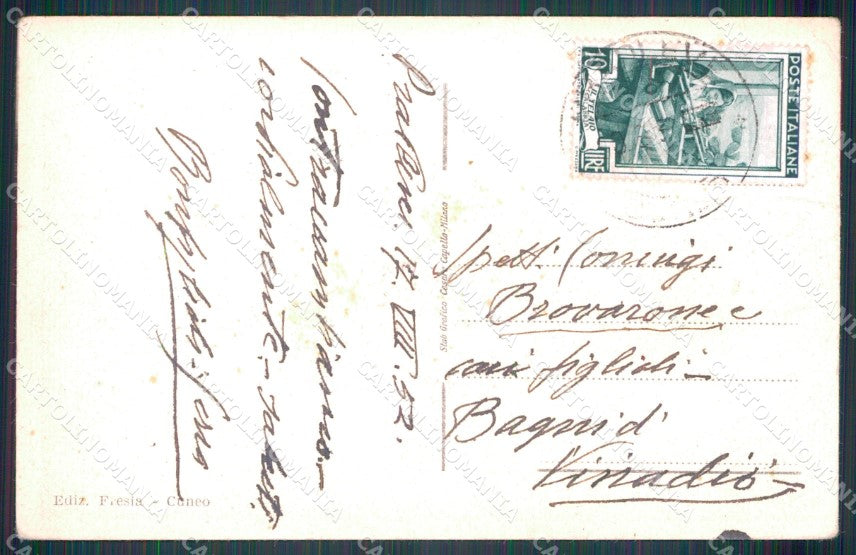 Pratleves 17. VIII. 52.
Contraccambiamo
cordialmente - saluti
POSTE ITALIANE
10
LIRE
Spett. Coniugi
Brovarone e
cari figlioli -
Bagni di
Vinadio
Stab Grafico Cesare Capello-Milano
Ediz. Fresia - Cuneo
CARTOLINOMANIA